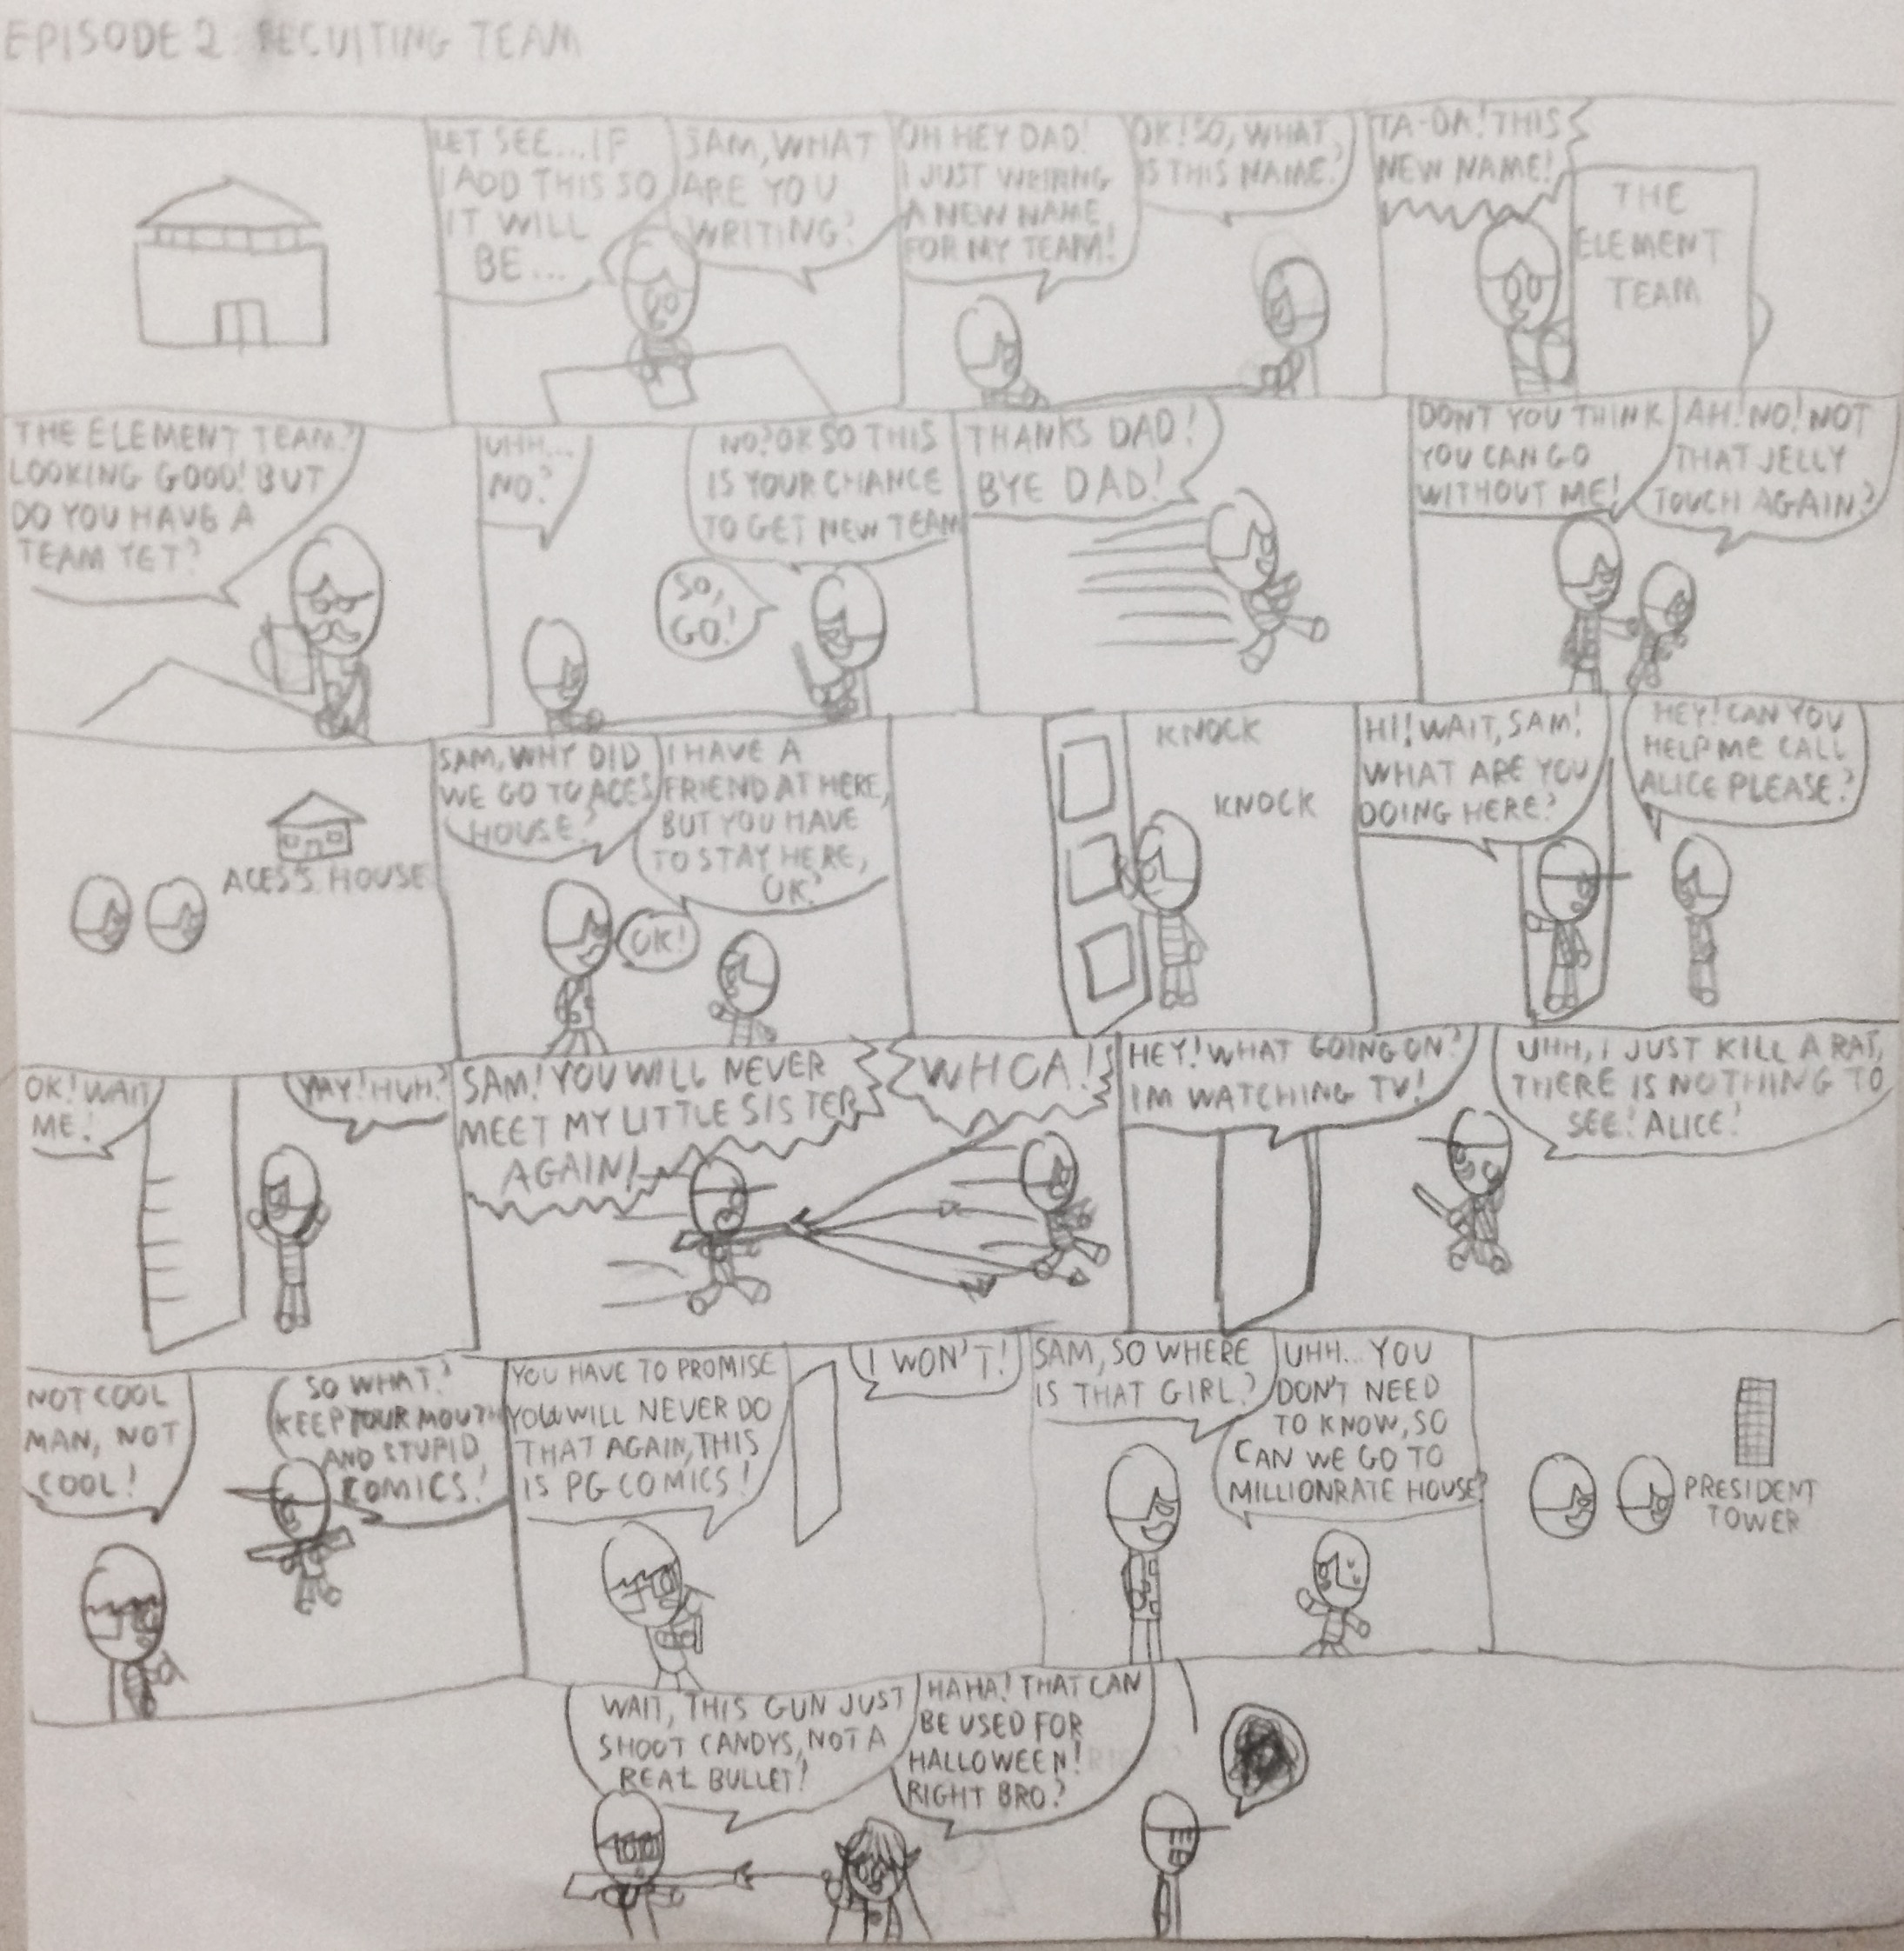 EPISODE 2: RECUITING TEAM
LET SEE...IF
I ADD THIS SO
IT WILL
BE...
SAM, WHAT
ARE YOU
WRITING?
OH HEY DAD!
I JUST WRIRING
A NEW NAME
FOR MY TEAM!
OK! SO, WHAT
IS THIS NAME?
TA-DA! THIS
NEW NAME!
THE
ELEMENT
TEAM
THE ELEMENT TEAM?
LOOKING GOOD! BUT
DO YOU HAVE A
TEAM YET?
UHH...
NO?
NO? OK SO THIS
IS YOUR CHANCE
TO GET NEW TEAM
SO,
GO!
THANKS DAD!
BYE DAD!
DONT YOU THINK
YOU CAN GO
WITHOUT ME!
AH! NO! NOT
THAT JELLY
TOUCH AGAIN?
ACES'S HOUSE
SAM, WHY DID
WE GO TO ACES
HOUSE?
I HAVE A
FRIEND AT HERE,
BUT YOU HAVE
TO STAY HERE,
OK?
OK!
KNOCK
KNOCK
HI! WAIT, SAM!
WHAT ARE YOU
DOING HERE?
HEY! CAN YOU
HELP ME CALL
ALICE PLEASE?
OK! WAIT
ME!
YAY! HUH?
SAM! YOU WILL NEVER
MEET MY LITTLE SISTER
AGAIN!
WHOA!
HEY! WHAT GOING ON?
IM WATCHING TV!
UHH, I JUST KILL A RAT,
THERE IS NOTHING TO
SEE! ALICE!
NOT COOL
MAN, NOT
COOL!
SO WHAT?
KEEP YOUR MOUTH
AND STUPID
COMICS!
YOU HAVE TO PROMISE
YOU WILL NEVER DO
THAT AGAIN, THIS
IS PG COMICS!
I WON'T!
SAM, SO WHERE
IS THAT GIRL?
UHH... YOU
DON'T NEED
TO KNOW, SO
CAN WE GO TO
MILLIONRATE HOUSE?
PRESIDENT
TOWER
WAIT, THIS GUN JUST
SHOOT CANDYS, NOT A
REAL BULLET!
HAHA! THAT CAN
BE USED FOR
HALLOWEEN!
RIGHT BRO?